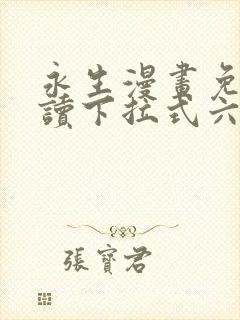 永生漫畫免
讀下拉式六
張寶君